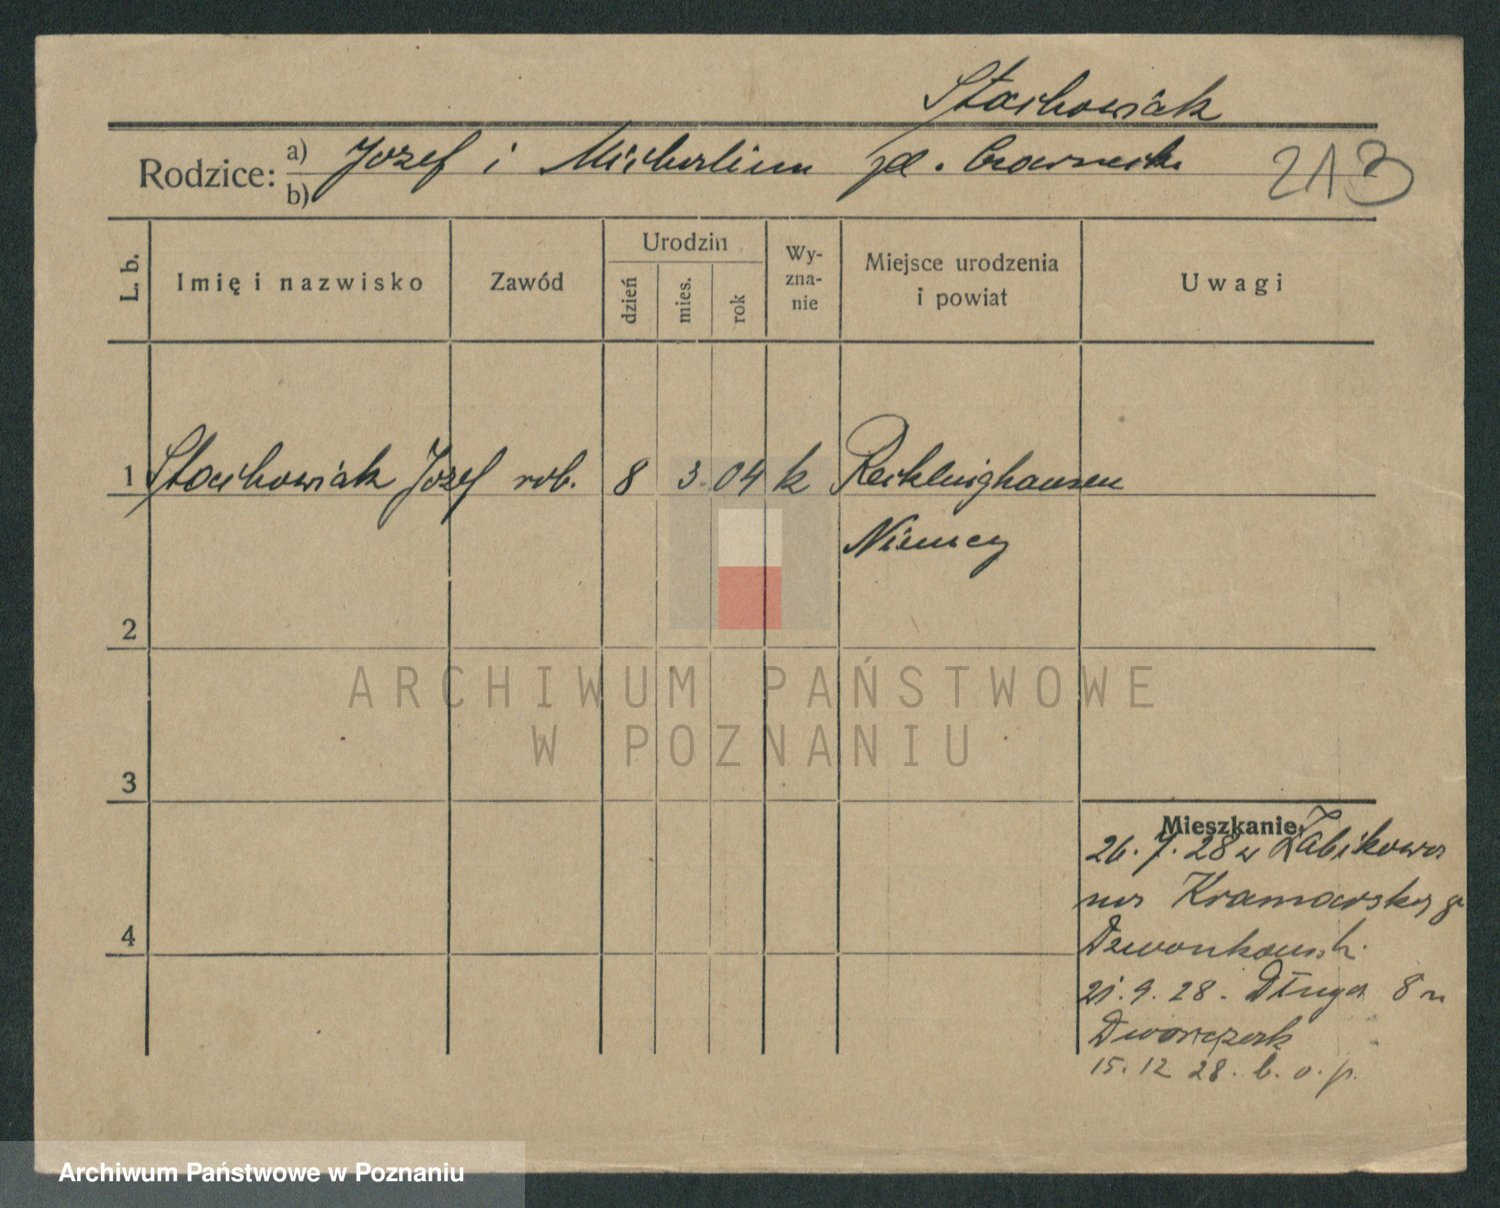 Stachowiak
Rodzice: a) Jozef i Michalina zd. Czarnecka
b)
213
L. b.
Imię i nazwisko
Zawód
Urodzin
dzień
mies.
rok
Wy-
zna-
nie
Miejsce urodzenia
i powiat
Uwagi
1 Stachowiak Jozef rob. 8 3. 04 k Recklinghausen
Niemcy
2
3
4
Mieszkanie:
26. 7. 28 z Żabikowa
Kramarska
21. 9. 28. Długa 8 u
Dworczak
15. 12 28. b. o. p.
ARCHIWUM PAŃSTWOWE
W POZNANIU
Archiwum Państwowe w Poznaniu